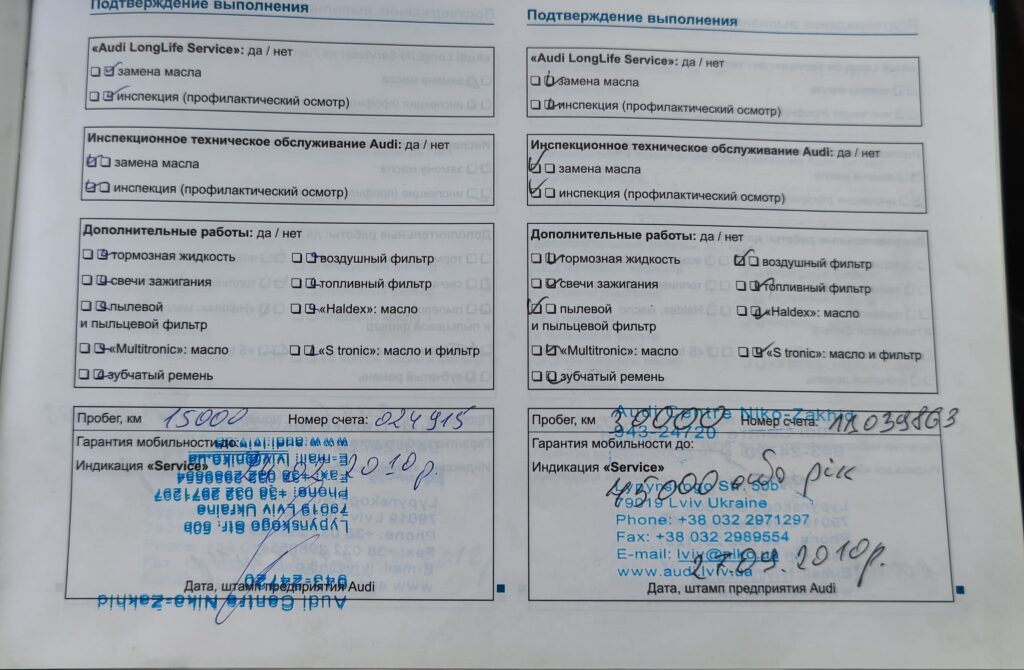 Подтверждение выполнения
«Audi LongLife Service»: да / нет
замена масла
инспекция (профилактический осмотр)
Инспекционное техническое обслуживание Audi: да / нет
замена масла
инспекция (профилактический осмотр)
Дополнительные работы: да / нет
тормозная жидкость воздушный фильтр
свечи зажигания топливный фильтр
пылевой «Haldex»: масло
и пыльцевой фильтр
«Multitronic»: масло «S tronic»: масло и фильтр
зубчатый ремень
Пробег, км 15000 Номер счета: 024915
Гарантия мобильности до:
www.audi.lviv.ua
E-mail: lviv@niko.ua
Индикация «Service» 2010р.
Fax: +38 032 2989554
Phone: +38 032 2971297
79019 Lviv Ukraine
Lypynskogo Str. 50b
943-24720
Дата, штамп предприятия Audi
Audi Centre Niko-Zakhid
Подтверждение выполнения
«Audi LongLife Service»: да / нет
замена масла
инспекция (профилактический осмотр)
Инспекционное техническое обслуживание Audi: да / нет
замена масла
инспекция (профилактический осмотр)
Дополнительные работы: да / нет
тормозная жидкость воздушный фильтр
свечи зажигания топливный фильтр
пылевой «Haldex»: масло
и пыльцевой фильтр
«Multitronic»: масло «S tronic»: масло и фильтр
зубчатый ремень
Audi Centre Niko-Zakhid
Пробег, км 30000 Номер счета: 11039863
943-24720
Гарантия мобильности до:
Индикация «Service»
45000 або рік
Lypynskogo Str. 50b
79019 Lviv Ukraine
Phone: +38 032 2971297
Fax: +38 032 2989554
E-mail: lviv@niko.ua
www.audi.lviv.ua
27.09.2010р.
Дата, штамп предприятия Audi